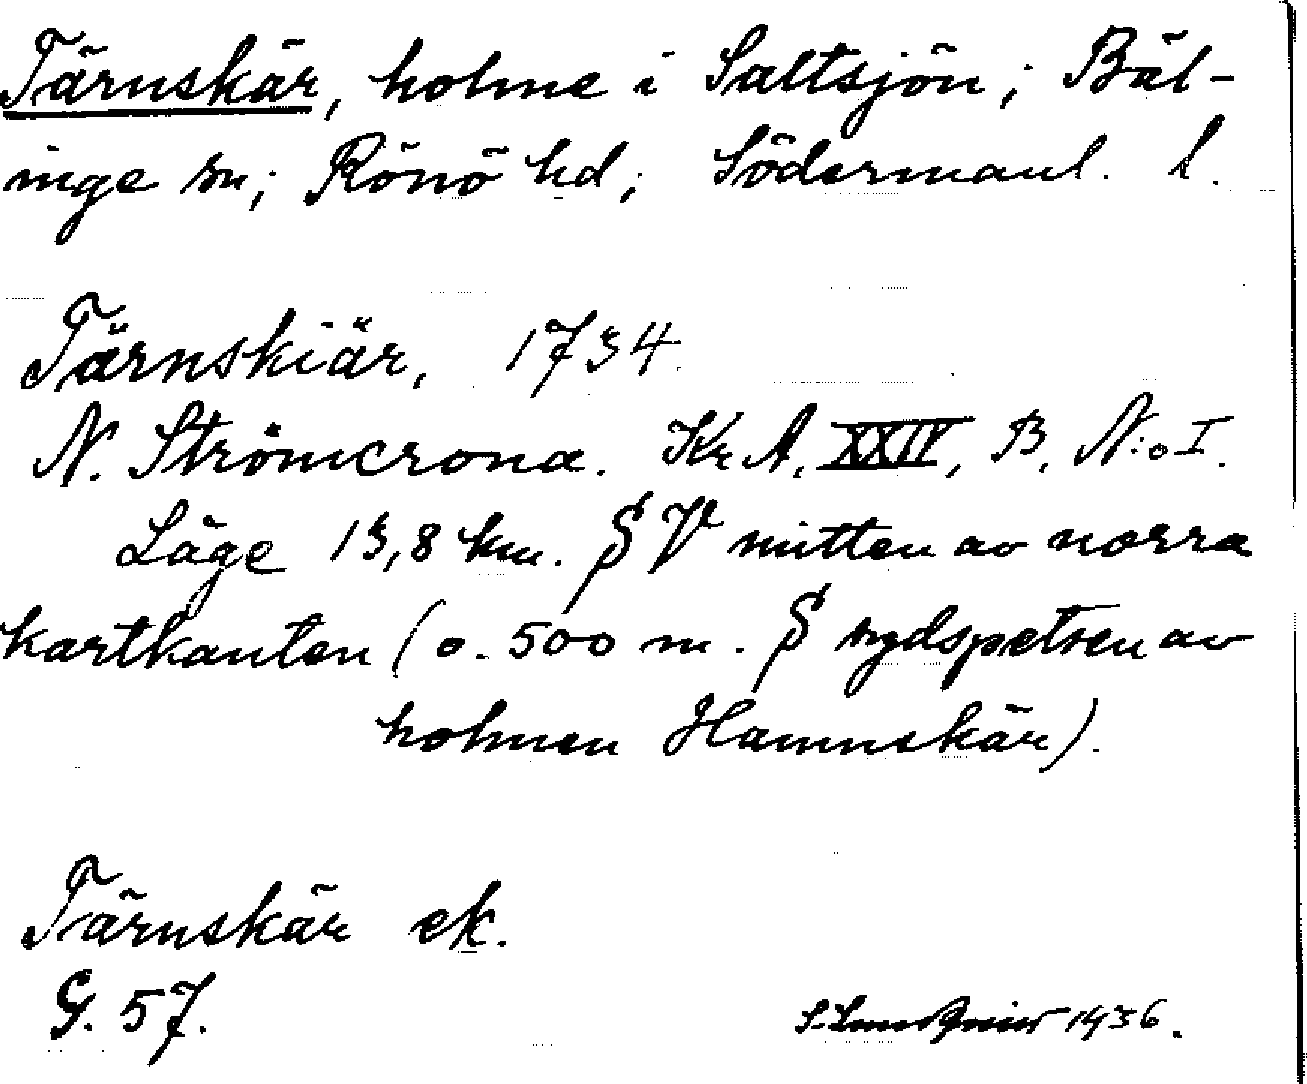 Tärnskär, holme i Saltsjön; Bäl-
inge sn; Rönö hd; Södermanl. l.
Tärnskiär, 1734.
N. Strömcrona. Kr A, XXIV, B, N:o I.
Läge 13,8 km. S V mitten av norra
kartkanten (o. 500 m. S sydspetsen av
holmen Hamnskär).
Tärnskär ek.
G. 57.
1936.